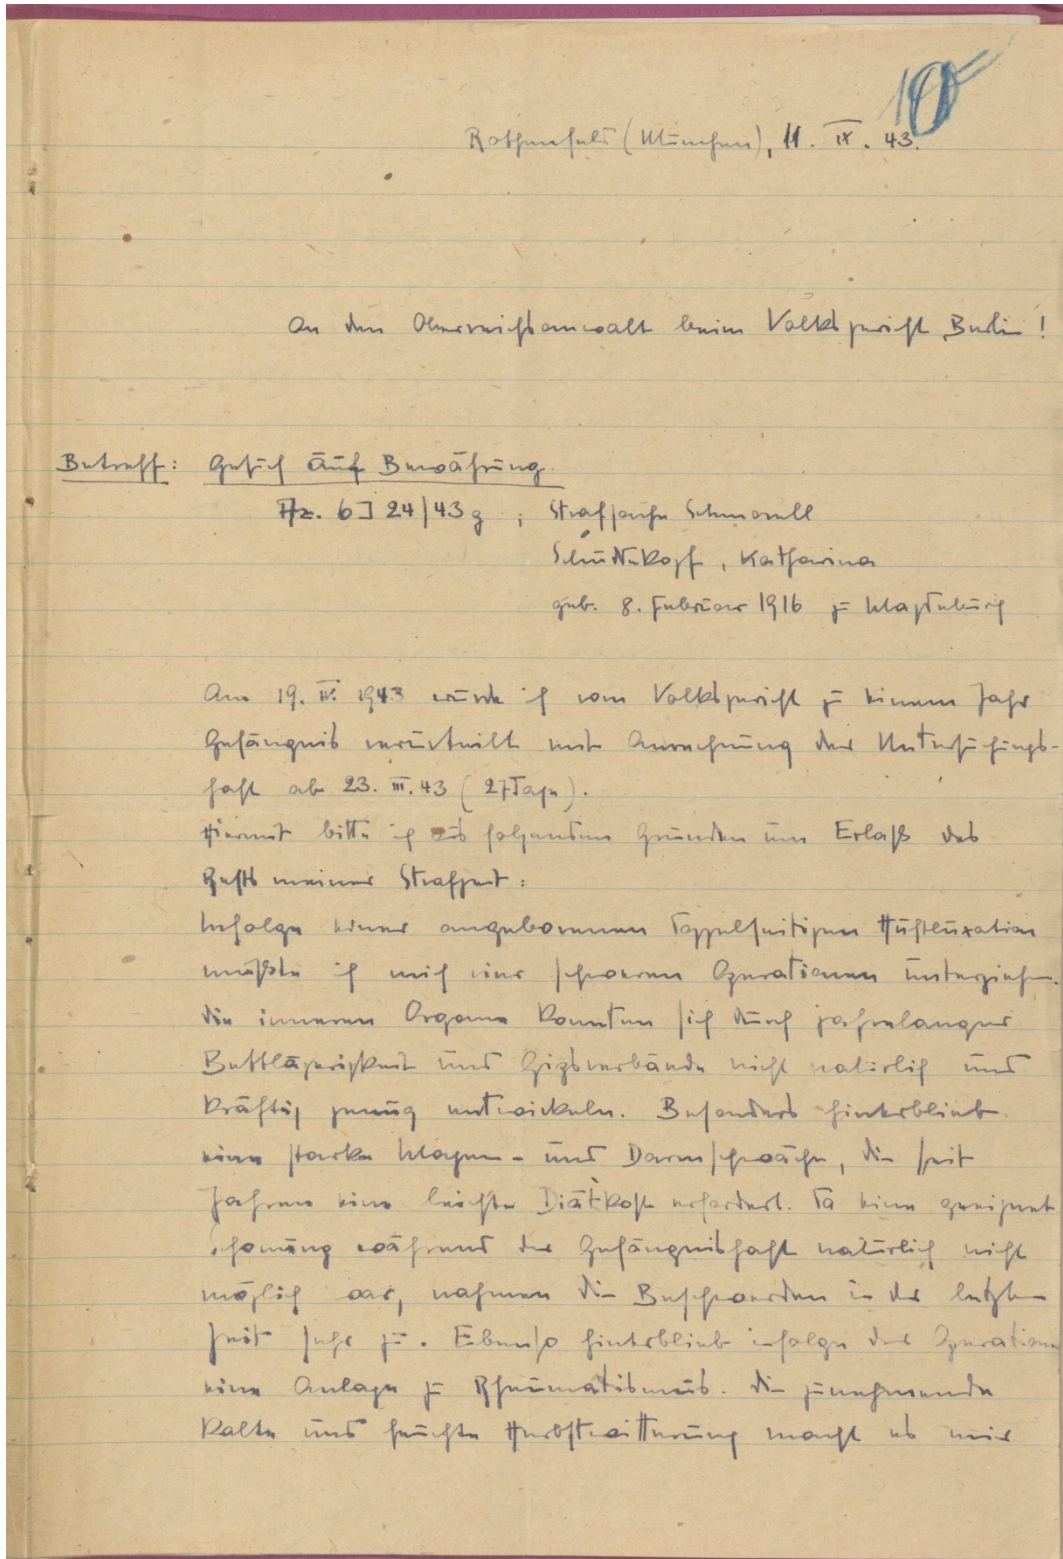 10
Rothenfeld (München), 11. IX. 43.
An den Oberreichsanwalt beim Volksgericht Berlin!
Betreff: Gesuch auf Bewährung.
Az. 6 J 24/43 g ; Strafsache Schmorell
Schüddekopf, Katharina
geb. 8. Februar 1916 zu Magdeburg
Am 19. IV. 1943 wurde ich vom Volksgericht zu einem Jahr
Gefängnis verurteilt mit Anrechnung der Untersuchungs-
haft ab 23. III. 43 (27 Tage).
Hiermit bitte ich aus folgenden Gründen um Erlaß des
Rests meiner Strafzeit:
Infolge einer angeborenen doppelseitigen Hüftluxation
mußte ich mich vier schweren Operationen unterziehen.
Die inneren Organe konnten sich durch jahrelanger
Bettlägerigkeit und Gipsverbände nicht natürlich und
kräftig genug entwickeln. Besonders hinterblieb
eine starke Magen- und Darmschwäche, die seit
Jahren eine leichte Diätkost erfordert. Da eine geeignete
Schonung während der Gefängnishaft natürlich nicht
möglich war, nahmen die Beschwerden in der letzten
Zeit sehr zu. Ebenso hinterblieb infolge der Operationen
eine Anlage zu Rheumatismus. Die zunehmende
kalte und feuchte Herbstwitterung macht es mir